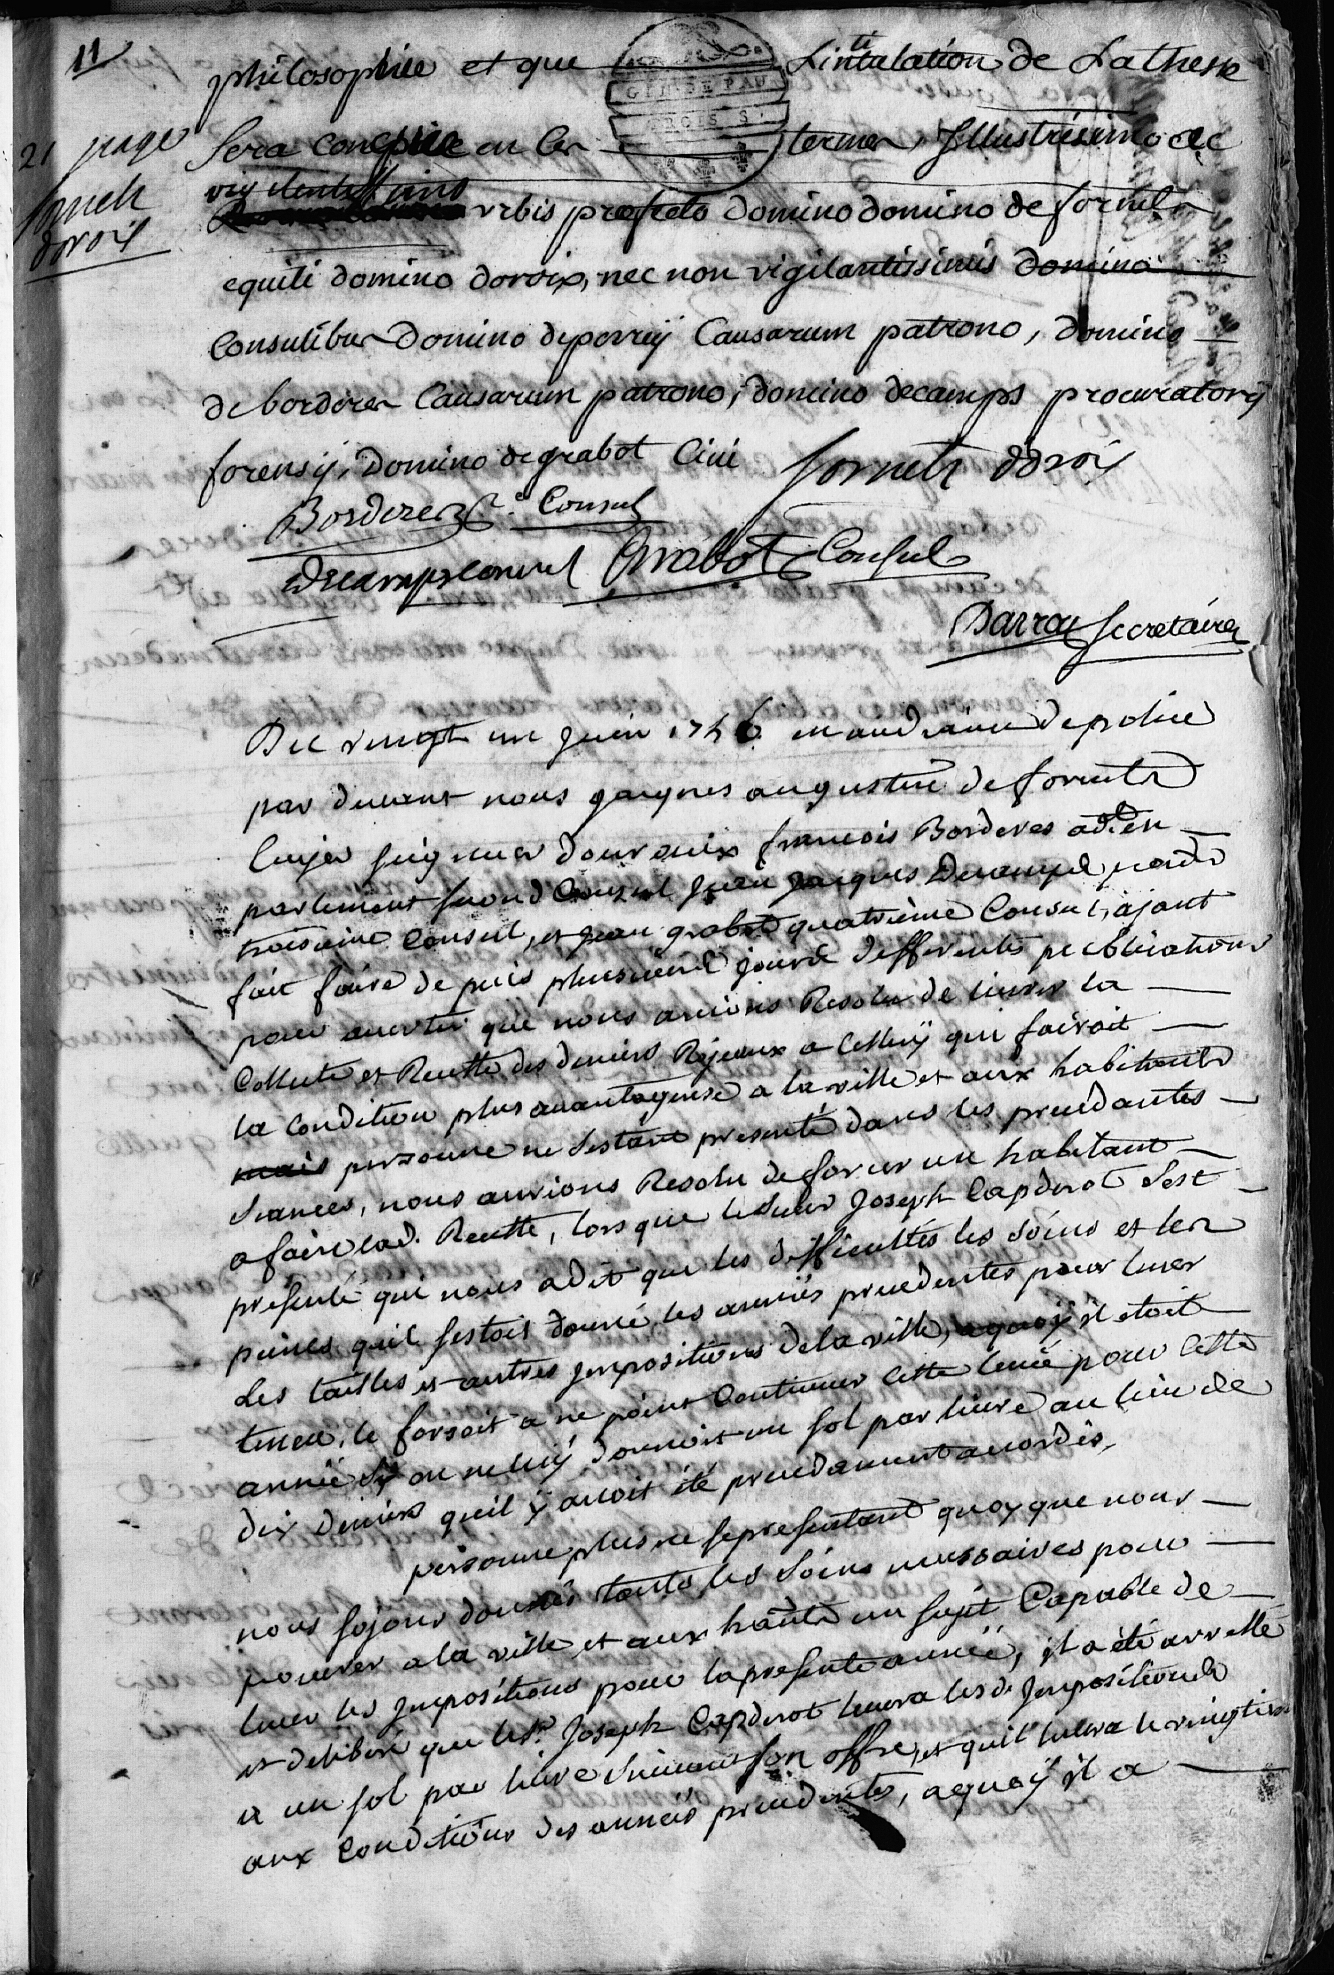 11
21 page
fornets
doroix
philosophie et que Lintitulation de La these
GEN DE PAU
Sera conceüe en ces termes, Illustrissimo ac
urbis præfecto domino domino de fornetz
equiti domino doroix, nec non vigilantissimis domino
Consulibus Domino deperrÿ Causarum patrono, domino
de borderes Causarum patrono, domino decamps procuratori
forensÿ, domino de grabot Civi fornetz doroix
Borderes Consul
Decamps Consul Grabot Consul
Darrac secretaire
Du vingt un juin 1756 en audiance de police
par devant nous jacques augustin de fornetz
Ecuyer seigneur douroix francois Borderes adt. en
parlement second Consul jean jacques Decamps
troisieme Consul, et jean grabot quatrieme Consul, ajant
fait faire depuis plusieurs jours differentes publications
pour avertir que nous avions Resolu de livrer la
Collecte et Recette des deniers Royeaux a Celluÿ qui fairoit
la Condition plus avantageuse a la ville et aux habitants
mais personne ne sestant presenté dans les precedantes
seances, nous aurions Resolu de forcer un habitant
a faire lad. Recette, lors que le sieur Joseph Capderot sest
presenté qui nous a dit que les difficultés les soins et les
peines quil sestoit donné les années precedentes pour lever
les tailles et autres jmpositions de la ville, aquoÿ il etoit
tenu, le forsoit a ne point Continuer cette levée pour Cette
année sy on ne luÿ donnoit un sol par livre au lieu de
dix deniers quil ÿ avoit eté precedament accordés,
personne plus ne se presentant quoy que nous
nous sojons donnés touts les soins necessaires pour
procurer a la ville et aux hants un sujet Capable de
lever les jmpositions pour la presente année, il a été arretté
et deliberé que le sr. Joseph Capderot levera lesd. jmpositions
a un sol par livre suivant son offre, et quil levera le vingtieme
aux Conditions des années precedentes, aquoÿ il a